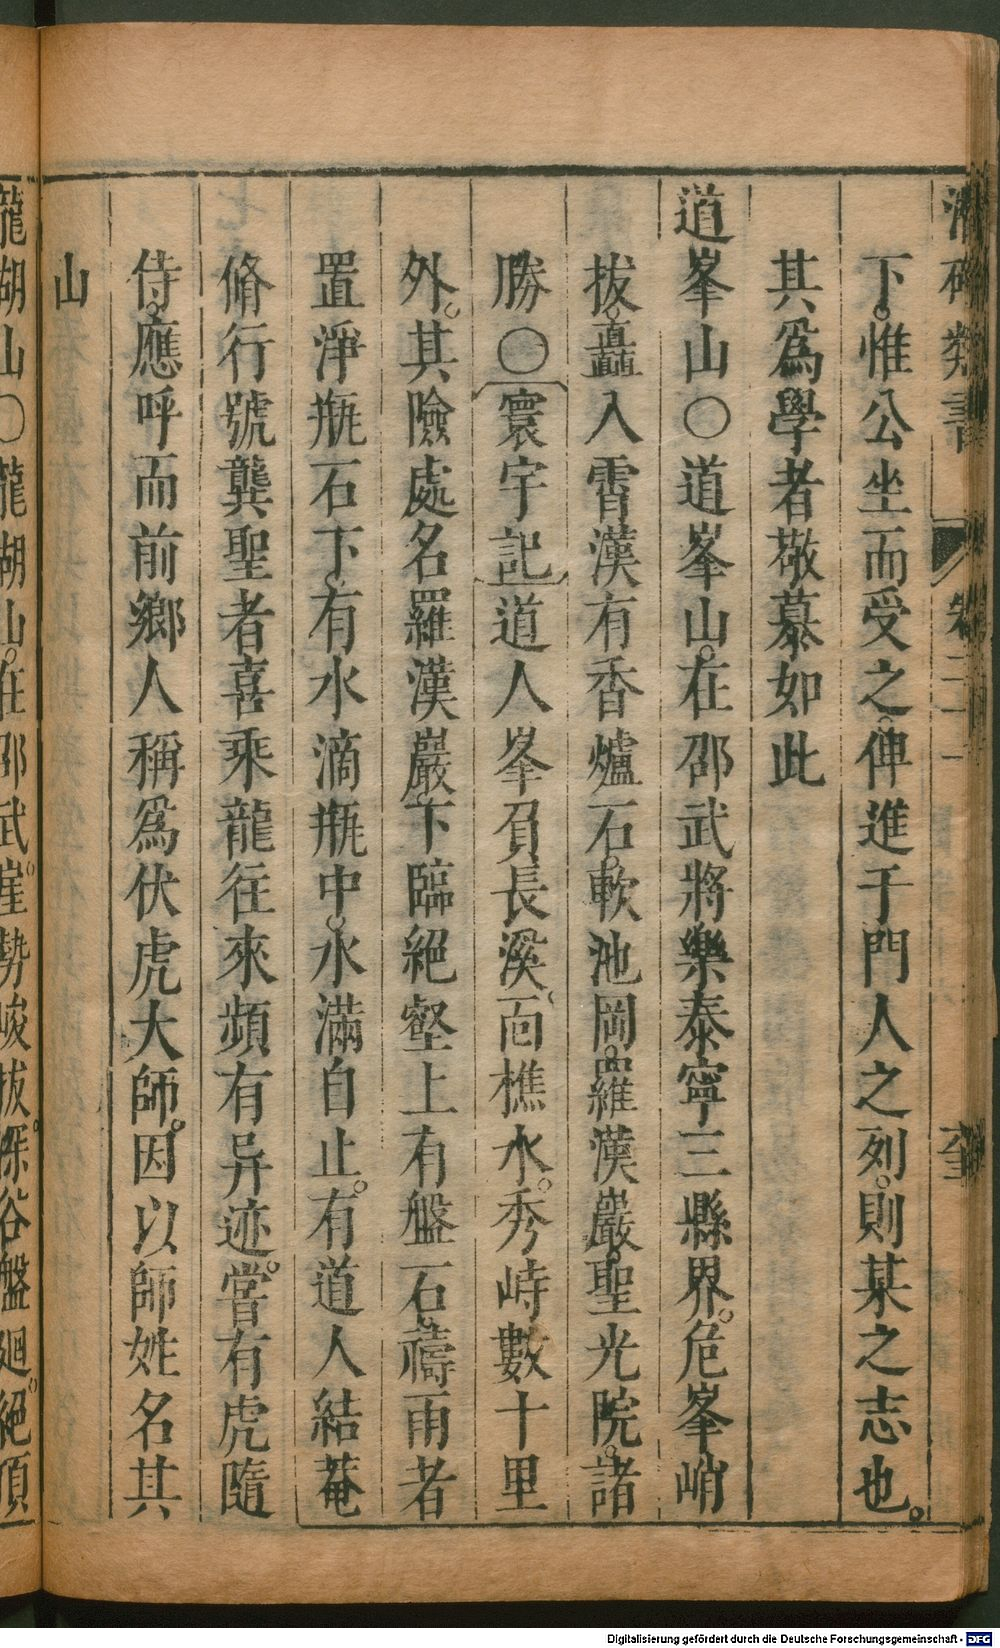 下惟公坐而受之俾進于門人之列則某之志也
其爲學者敬慕如此
道峯山○道峯山在邵武將樂泰寧三縣界危峯峭
拔矗入霄漢有香爐石軟池岡羅漢巖聖光院諸
勝○寰宇記道人峯負長溪面樵水秀峙數十里
外其險處名羅漢巖下臨絕壑上有盤石禱雨者
置淨瓶石下有水滴瓶中水滿自止有道人結菴
脩行號龔聖者喜乘龍往來頻有异迹嘗有虎隨
侍應呼而前鄉人稱爲伏虎大師因以師姓名其
山
龍湖山○龍湖山在邵武崖勢峻拔深谷盤廻絕頂
Digitalisierung gefördert durch die Deutsche Forschungsgemeinschaft - DFG